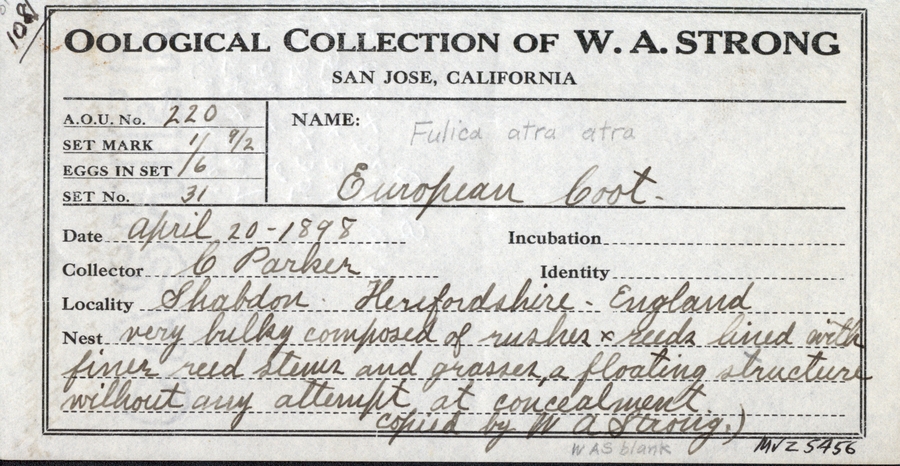 108
OOLOGICAL COLLECTION OF W. A. STRONG
SAN JOSE, CALIFORNIA
A.O.U. No. 220
SET MARK 1/ 9/2
EGGS IN SET 16
SET No. 31
NAME:
Fulica atra atra
European Coot.
Date April 20-1898
Incubation
Collector C Parker
Identity
Locality Shabdon. Herifordshire - England
Nest very bulky composed of rushes & reeds lined with
finer reed stems and grasses, a floating structure
without any attempt at concealment
copied by W A Strong.)
WAS blank
MVZ 5456